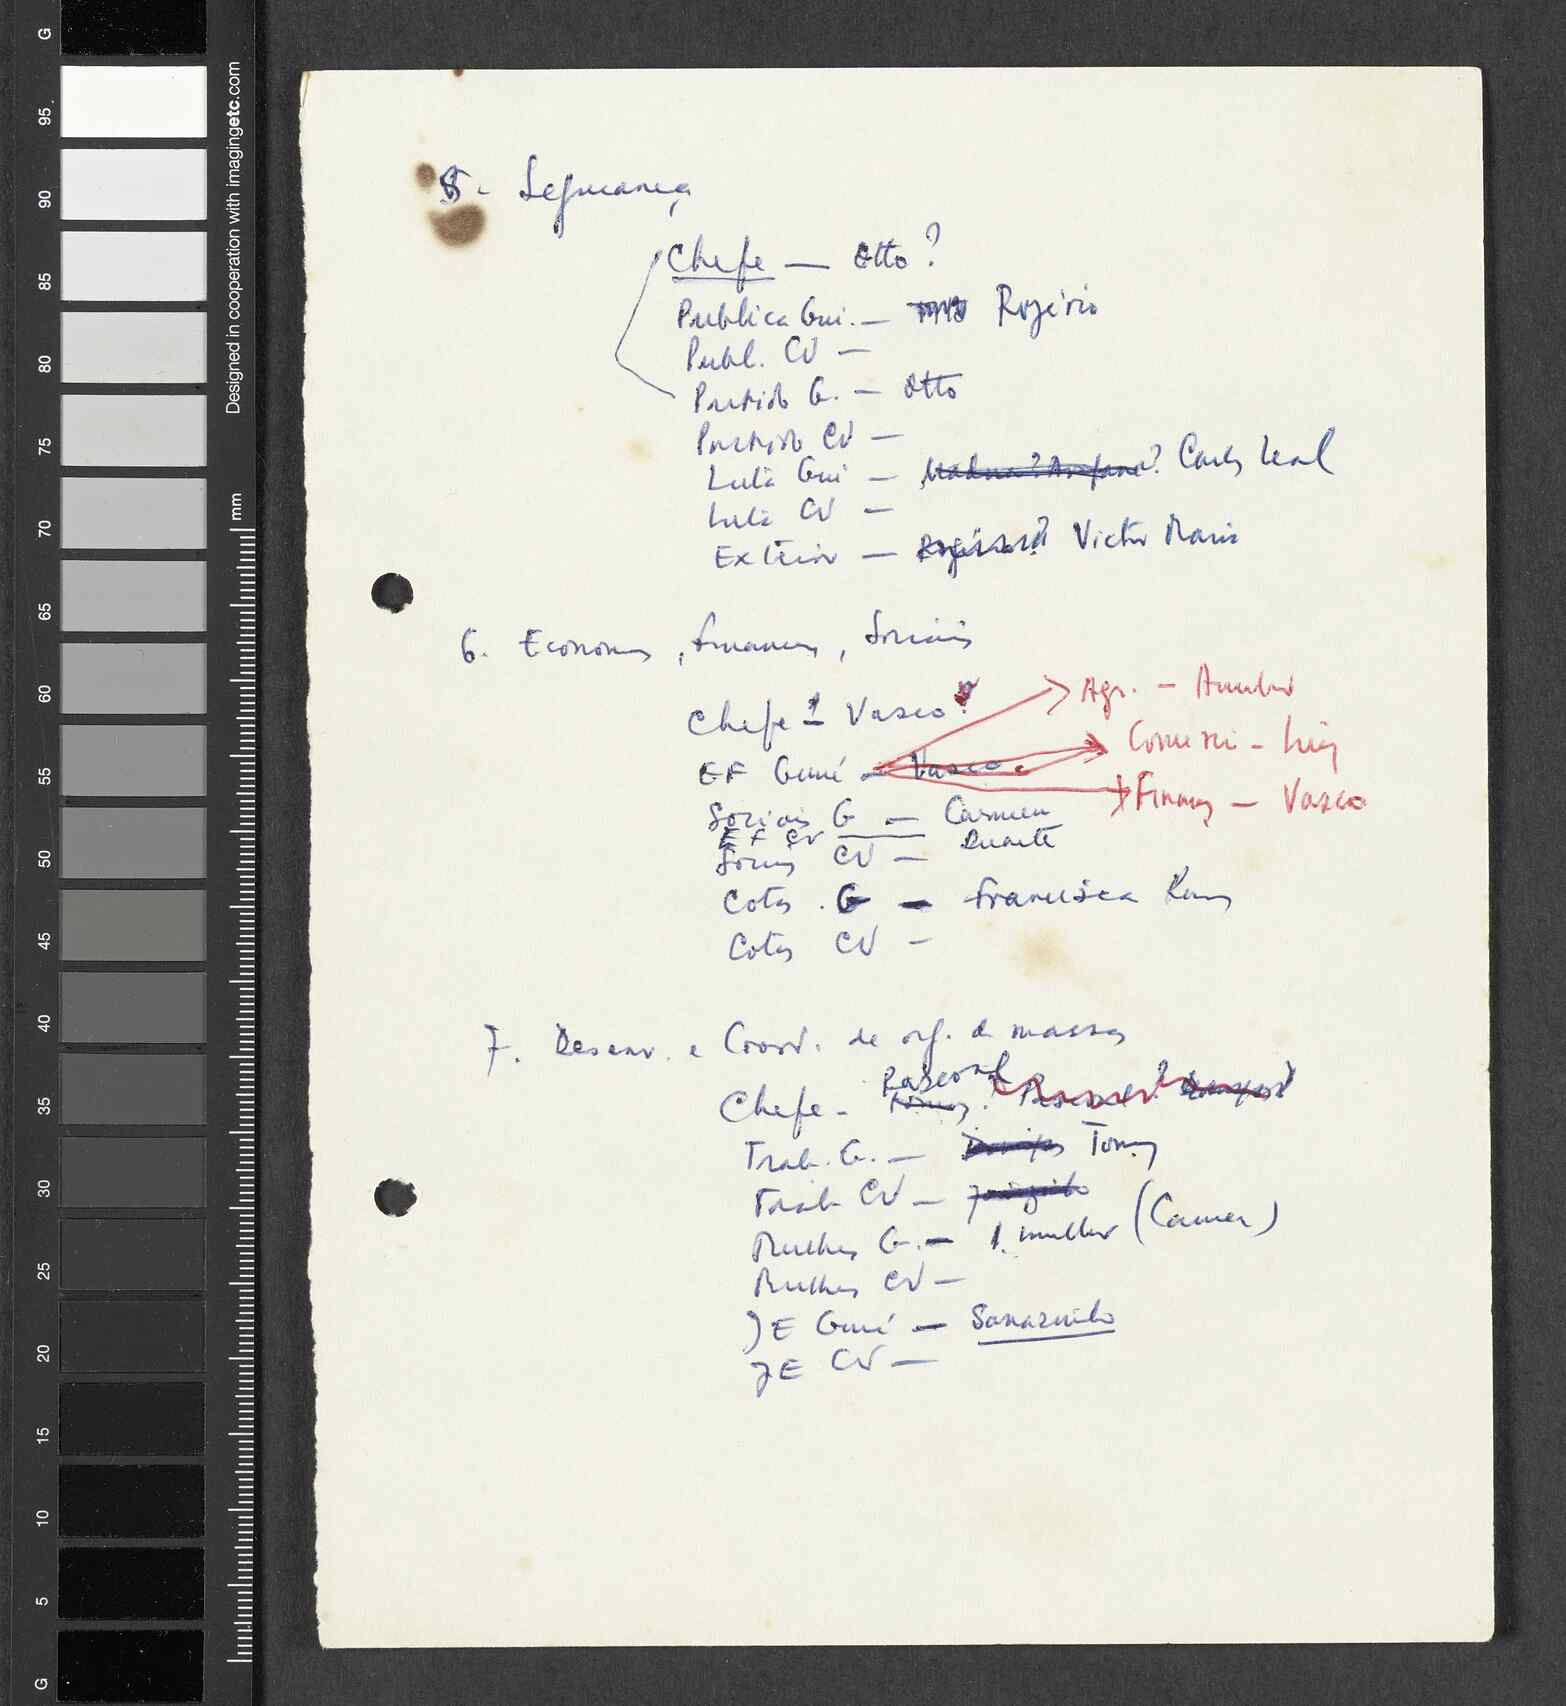 G
95
90
85
80
75
70
65
60
55
50
45
40
35
30
25
20
15
10
5
G
Designed in cooperation with imagingetc.com
mm
5 - Segurança
Chefe — Otto?
Publica Gui. — Rogério
Publ. CV —
Partido G. — Otto
Partido CV —
Luta Gui — Carlos Leal
Luta CV —
Exterior — Victor Maria
6. Economia, finanças, Sociais
Chefe 1 Vasco?
Agr. —
EF Guiné — Vasco
Comerci —
Finanças — Vasco
Sociais G — Carmen
EF CV Duarte
Sociais CV —
Cotas G — Francisca
Cotas CV —
7. Desenv. e Coord. de org. de massas
Pascoal
Chefe - Tomás? Pascoal?
Trab. G. — Tomás
Trab CV —
Mulheres G. — 1. mulher (Carmen)
Mulheres CV —
JE Guiné —
JE CV —